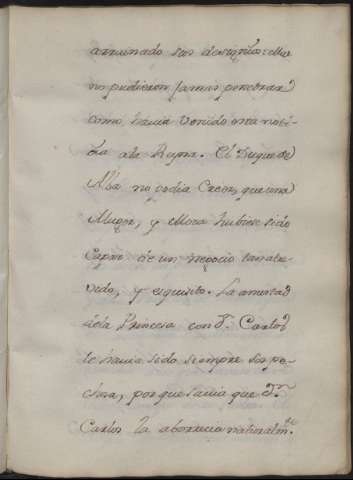 arruinado sus designios: ellos
no pudieron jamas penetrar
como havia venido esta noti-
cia a la Reyna. El Duque de
Alba no podia creer, que una
Muger, y Moza hubiese sido
capaz de un negocio tan atre-
vido, y exquisito. La amistad
dela Princesa con Dn. Carlos
le havia sido siempre sospe-
chosa, porque savia que Dn.
Carlos la aborrecia naturalmte.